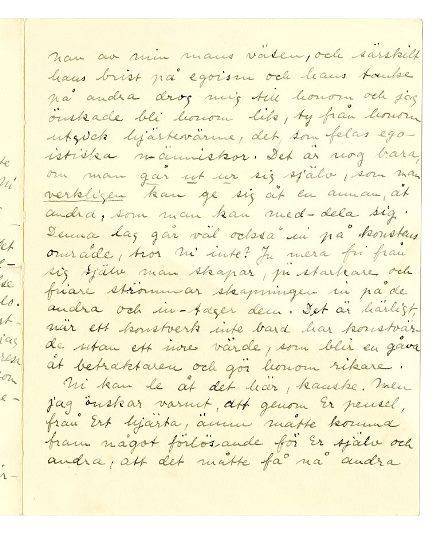 nan av min mans väsen, och särskilt
hans brist på egoism och hans tanke
på andra drog mig till honom och jag
önskade bli honom lik, ty från honom
utgick hjärtevärme, det, som felas ego-
istiska människor. Det är nog bara,
om man går ut ur sig själv, som man
verkligen kan ge sig åt en annan, åt
andra, som man kan med-dela sig.
Denna lag går väl också in på konstens
område, tror Ni inte? Ju mera fri från
sig själv man skapar, ju starkare och
friare strömmar skapningen in på de
andra och in-tager dem. Det är härligt,
när ett konstverk inte bard har konstvär-
de utan ett inre värde, som blir en gåva
åt betraktaren och gör honom rikare.
Ni kan le åt det här, kanske. Men
jag önskar varmt, att genom Er pensel,
från Ert hjärta, ännu måtte komma
fram något förlösande för Er själv och
andra, att det måtte få nå andra